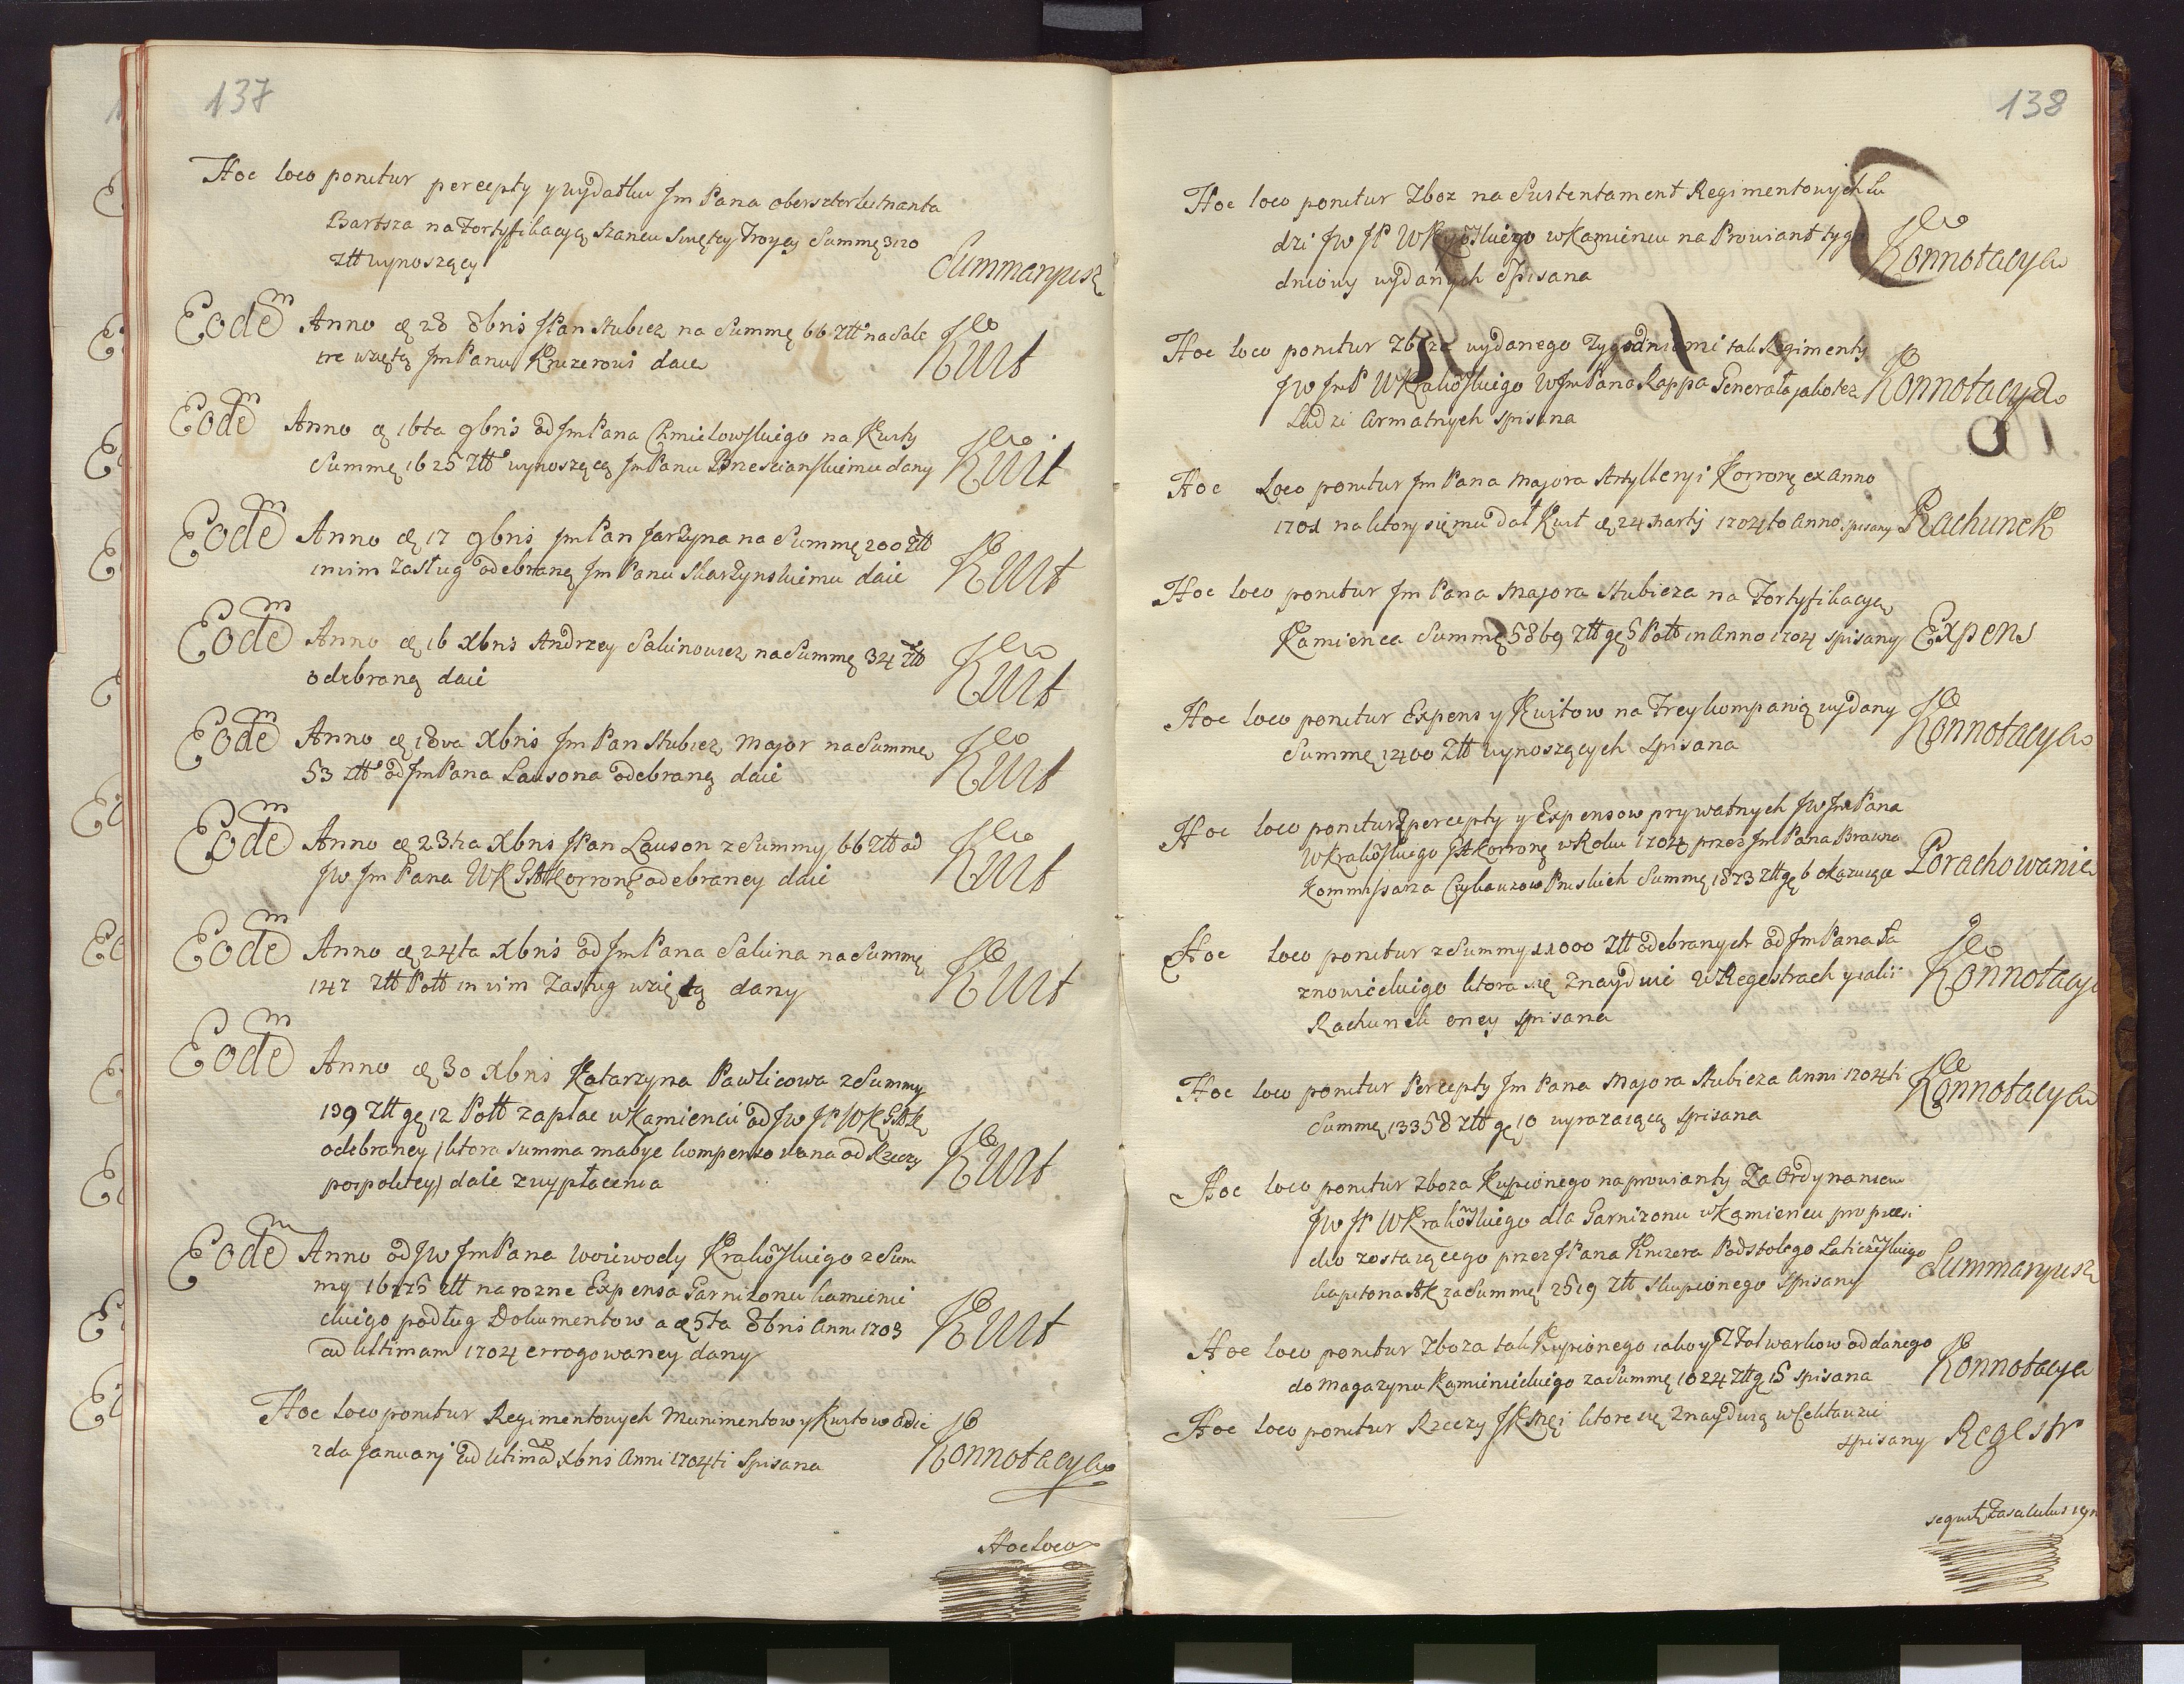 137
Hoc loco ponitur percepty y wydatku Jm Pana obersterleitnanta
Bartsza na Fortyfikacyą Szancu Swiętey Troycy Summę 3120
Ztt wynoszący Summaryusz
Eodem Anno d 28 8bris JPan Stubicz na Summę 66 Ztt na Sale
tre wziętą Jm Panu Kruzerowi daie Kwit
Eodem Anno d 16ta 9bris od Jm Pana Chmielowskiego na Kurty
Summę 1625 Ztt wynoszącą Jm Panu Brzescianskiemu dany Kwit
Eodem Anno d 17 9bris Jm Pan Jarzyna na Summę 200 Ztt
in vim Zasług odebraną Jm Panu Skarzynskiemu daie Kwit
Eodem Anno d 16 Xbris Andrzey Sakinowicz na Summę 34 Ztt
odebraną daie Kwit
Eodem Anno d 18va Xbris Jm Pan Stubicz Major na Summę
53 Ztt od Jm Pana Lausona odebraną daie Kwit
Eodem Anno d 23tia Xbris JPan Lauson z Summy 66 Ztt od
JW Jm Pana WK GAKorronę odebraney daie Kwit
Eodem Anno d 24ta Xbris od Jm Pana Sakina na Summę
147 Ztt Pott in vim Zasług wziętą dany Kwit
Eodem Anno d 30 Xbris Katarzyna Pawlicowa z Summy
139 Ztt gę 12 Pott za płac w Kamiencu od JW JP WK GAK
odebraney (ktora summa ma byc kompensowana od Rzeczy
pospolitey) daie z wypłacenia Kwit
Eodem Anno od JW Jm Pana Woiewody Krakoskiego z Sum
my 16175 Ztt na rozne Expensa Garnizonu kamieni
ckiego podług Dokumentow a d 5ta 8bris Anni 1703
ad Ultimam 1704 errogowaney dany Kwit
Hoc loco ponitur Regimentowych Munimentow y Kwitow a die
2da Januarij ad Ultimam Xbris Anni 1704ti Spisana Konnotacya
Hoc Loco
138
Hoc loco ponitur Zboz na Sustentament Regimentowych Lu
dzi JW JP WKrakoskiego w Kamiencu na Prowiant tygo
dniowy wydanych Spisana Konnotacya
Hoc loco ponitur Zboza wydanego Tygodniami tak Regimenty
JW JmP WKrakoskiego W Jm Pana Kappa Generała jako tez
Ludzi Armatnych spisana Konnotacya
Hoc Loco ponitur Jm Pana Majora Artyllenyi Korronę ex Anno
1701 na ktory się mu dał Kwit d 24 Martij 1704to Anno spisany Rachunek
Hoc loco ponitur Jm Pana Majora Stubicza na Fortyfikacyą
Kamienca Summę 5869 Ztt gę 5 Pott in Anno 1704 spisany Expens
Hoc loco ponitur Expens y Kwitow na Freykompanią wydany
Summę 1400 Ztt wynoszących spisana Konnotacya
Hoc loco ponitur Z percepty y Expensow prywatnych JW Jm Pana
WKrakoskiego GAKorronę w Roku 1704 przez Jm Pana Brauna
Kommissarza Cugauzow Pruskich Summę 1873 Ztt gę 6 okazuiące Porachowanie
Hoc loco ponitur z Summy 11000 Ztt odebranych od Jm Pana Ta
rnowieckiego ktora się Znayduie w Regestrach y iakis
Rachunek oney spisana Konnotacya
Hoc loco ponitur Percepty Jm Pana Majora Stubicza Anni 1704ti
Summę 13358 Ztt gę 10 wyrazaiącą spisana Konnotacya
Hoc loco ponitur zboza Kupionego na prowianty Za Ordynansem
JW JP WKrakoskiego dla Garnizonu w Kamiencu pro praesi
dio zostaiącego przez JPana Kruzera Podstolego Laticzewskiego
kapitana AK za Summę 2519 Ztt skupionego spisany Summaryusz
Hoc loco ponitur Zboza tak Kupionego iako y z Folwarkow oddanego
do Magazynu Kamienieckiego za Summę 1024 Ztt gę 15 spisana Konnotacya
Hoc loco ponitur Rzeczy JKMci ktore się Znayduią w Cekauzie
spisany Regestr